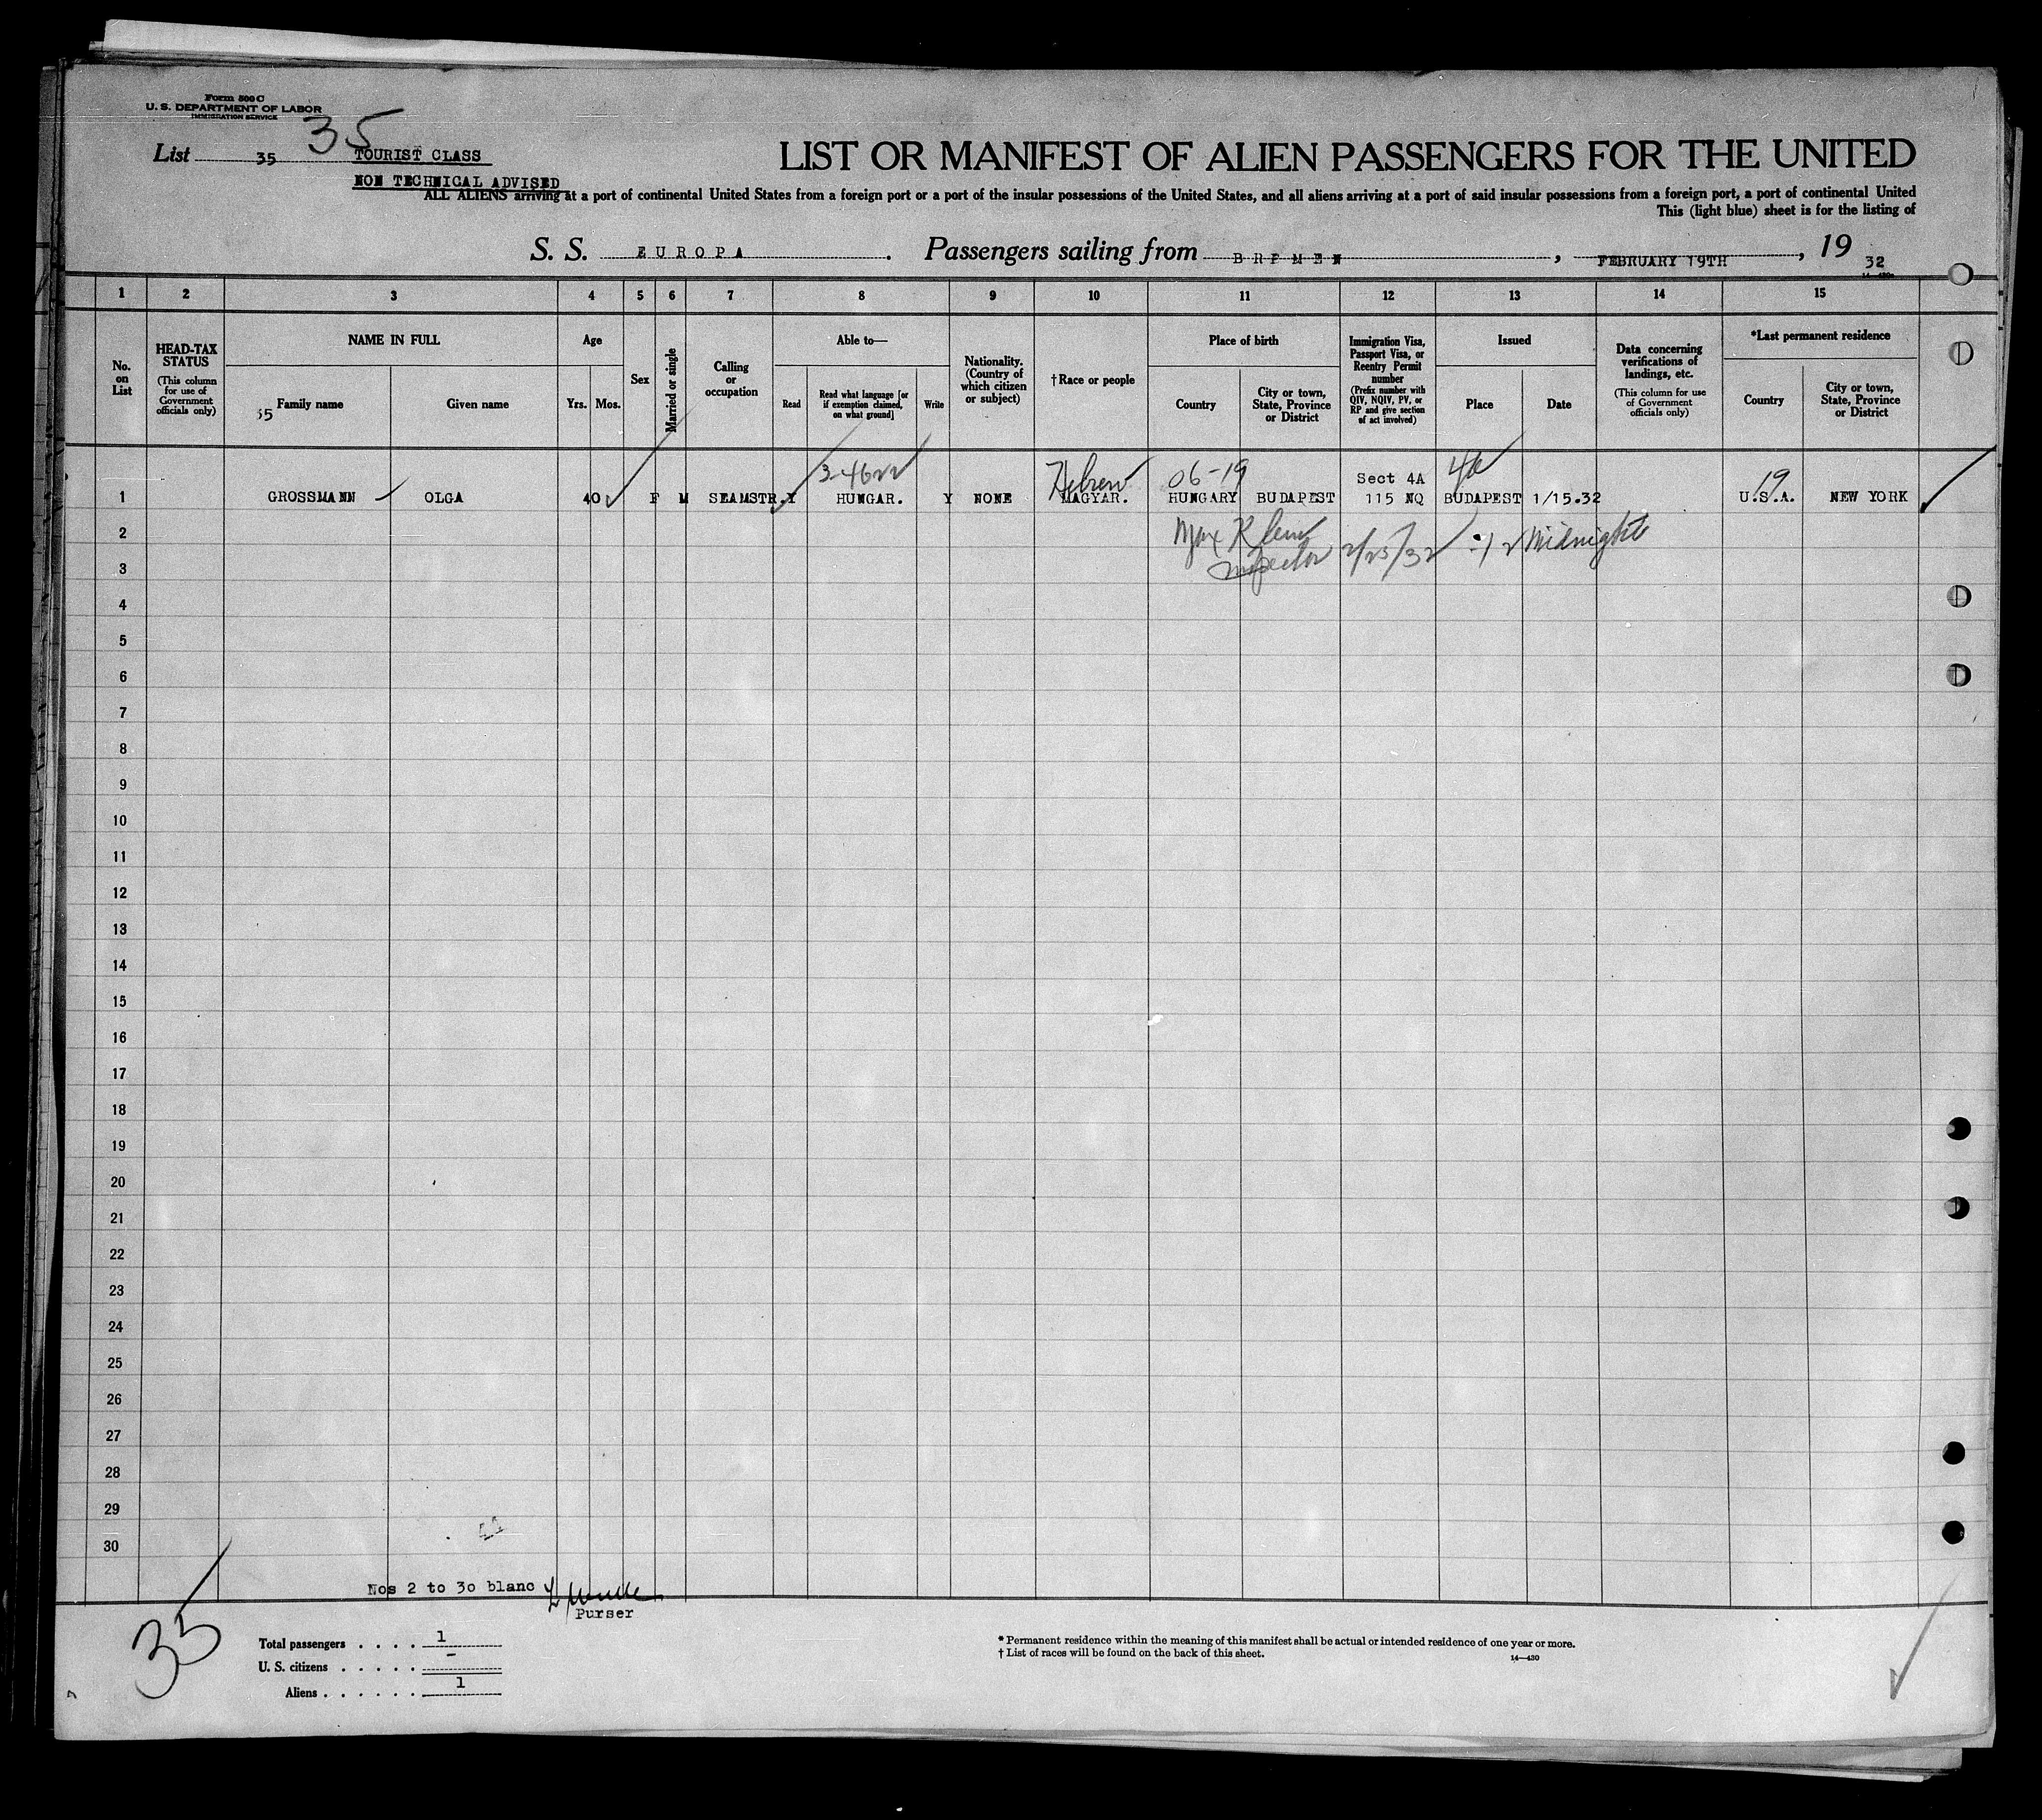 Form 500 C
U. S. DEPARTMENT OF LABOR
IMMIGRATION SERVICE
35
List 35 TOURIST CLASS
NON TECHNICAL ADVISED
LIST OR MANIFEST OF ALIEN PASSENGERS FOR THE UNITED
ALL ALIENS arriving at a port of continental United States from a foreign port or a port of the insular possessions of the United States, and all aliens arriving at a port of said insular possessions from a foreign port, a port of continental United
This (light blue) sheet is for the listing of
S. S. EUROPA. Passengers sailing from BREMEN, FEBRUARY 19TH, 19 32
1 2 3 4 5 6 7 8 9 10 11 12 13 14 15
No. on List
HEAD-TAX STATUS
(This column for use of Government officials only)
NAME IN FULL
35 Family name
Given name
Age
Yrs. Mos.
Sex
Married or single
Calling or occupation
Able to—
Read
Read what language [or if exemption claimed, on what ground]
Write
Nationality. (Country of which citizen or subject)
†Race or people
Place of birth
Country
City or town, State, Province or District
Immigration Visa, Passport Visa, or Reentry Permit number
(Prefix number with QIV, NQIV, PV, or RP and give section of act involved)
Issued
Place
Date
Data concerning verifications of landings, etc.
(This column for use of Government officials only)
*Last permanent residence
Country
City or town, State, Province or District
Hebrew 06-19 Sect 4A 19
1 GROSSMANN OLGA 40 F M SEAMSTR. Y HUNGAR. Y NONE MAGYAR. HUNGARY BUDAPEST 115 NQ BUDAPEST 1/15.32 U.S.A. NEW YORK
2 Max Klein 2/25/32 12 Midnight
3 Inspector
4
5
6
7
8
9
10
11
12
13
14
15
16
17
18
19
20
21
22
23
24
25
26
27
28
29
30
Nos 2 to 30 blanc
Purser
35
Total passengers . . . . 1
U. S. citizens . . . . . -
Aliens . . . . . . 1
* Permanent residence within the meaning of this manifest shall be actual or intended residence of one year or more.
† List of races will be found on the back of this sheet.
14—430